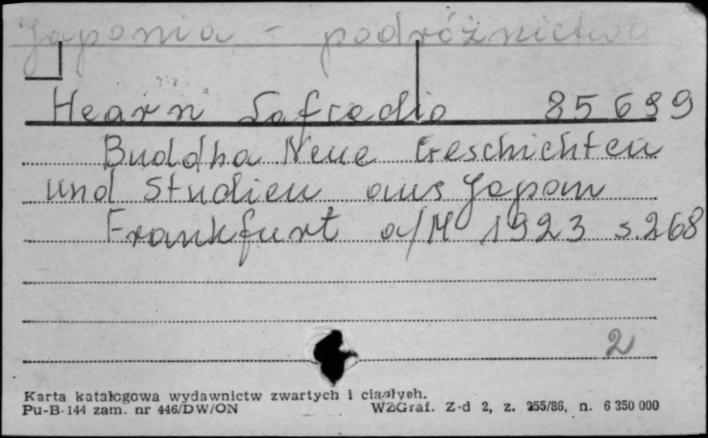 Japonia - podróżnictwo
Hearn Lafcadio 85689
Buddha Neue Geschichten
und Studien aus Japan
Frankfurt a/M 1923 s.268
2
Karta katalogowa wydawnictw zwartych i ciągłych.
Pu-B-144 zam. nr 446/DW/ON WZGraf. Z-d 2, z. 255/86, n. 6 350 000